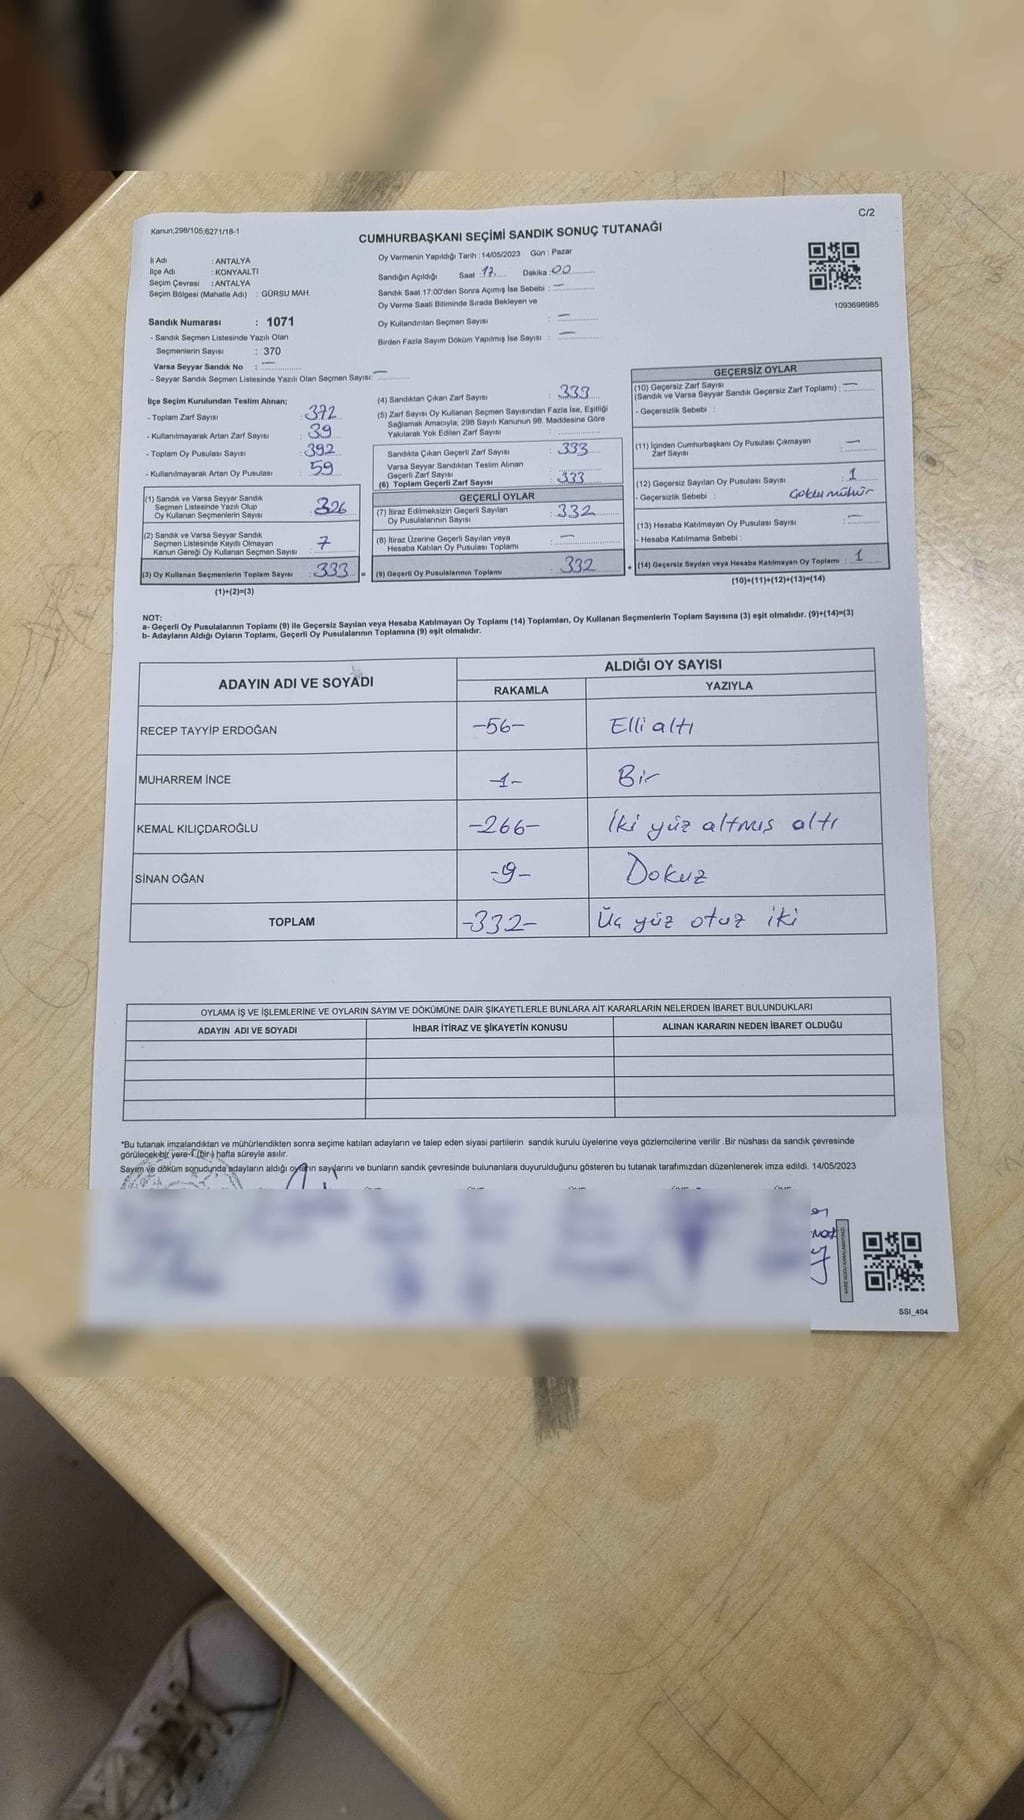 C/2
Kanun;298/105;6271/18-1
CUMHURBAŞKANI SEÇİMİ SANDIK SONUÇ TUTANAĞI
İl Adı : ANTALYA
İlçe Adı : KONYAALTI
Seçim Çevresi : ANTALYA
Seçim Bölgesi (Mahalle Adı) : GÜRSU MAH.
Sandık Numarası : 1071
- Sandık Seçmen Listesinde Yazılı Olan
Seçmenlerin Sayısı : 370
Varsa Seyyar Sandık No : —
- Seyyar Sandık Seçmen Listesinde Yazılı Olan Seçmen Sayısı: —
Oy Vermenin Yapıldığı Tarih : 14/05/2023 Gün : Pazar
Sandığın Açıldığı Saat : 17 Dakika : 00
Sandık Saat 17:00'den Sonra Açımış İse Sebebi : —
Oy Verme Saati Bitiminde Sırada Bekleyen ve
Oy Kullandırılan Seçmen Sayısı : —
Birden Fazla Sayım Döküm Yapılmış İse Sayısı : —
1093698985
İlçe Seçim Kurulundan Teslim Alınan;
- Toplam Zarf Sayısı : 372
- Kullanılmayarak Artan Zarf Sayısı : 39
- Toplam Oy Pusulası Sayısı : 392
- Kullanılmayarak Artan Oy Pusulası : 59
(1) Sandık ve Varsa Seyyar Sandık
Seçmen Listesinde Yazılı Olup
Oy Kullanan Seçmenlerin Sayısı : 326
(2) Sandık ve Varsa Seyyar Sandık
Seçmen Listesinde Kayıtlı Olmayan
Kanun Gereği Oy Kullanan Seçmen Sayısı : 7
(3) Oy Kullanan Seçmenlerin Toplam Sayısı : 333
(1)+(2)=(3)
(4) Sandıktan Çıkan Zarf Sayısı : 333
(5) Zarf Sayısı Oy Kullanan Seçmen Sayısından Fazla İse, Eşitliği
Sağlamak Amacıyla; 298 Sayılı Kanunun 98. Maddesine Göre
Yakılarak Yok Edilen Zarf Sayısı :
Sandıkta Çıkan Geçerli Zarf Sayısı : 333
Varsa Seyyar Sandıktan Teslim Alınan
Geçerli Zarf Sayısı :
(6) Toplam Geçerli Zarf Sayısı : 333
GEÇERLİ OYLAR
(7) İtiraz Edilmeksizin Geçerli Sayılan
Oy Pusulalarının Sayısı : 332
(8) İtiraz Üzerine Geçerli Sayılan veya
Hesaba Katılan Oy Pusulası Toplamı : —
= (9) Geçerli Oy Pusulalarının Toplamı : 332 +
GEÇERSİZ OYLAR
(10) Geçersiz Zarf Sayısı
(Sandık ve Varsa Seyyar Sandık Geçersiz Zarf Toplamı) : —
- Geçersizlik Sebebi :
(11) İçinden Cumhurbaşkanı Oy Pusulası Çıkmayan
Zarf Sayısı : —
(12) Geçersiz Sayılan Oy Pusulası Sayısı : 1
- Geçersizlik Sebebi :
(13) Hesaba Katılmayan Oy Pusulası Sayısı : —
- Hesaba Katılmama Sebebi :
(14) Geçersiz Sayılan veya Hesaba Katılmayan Oy Toplamı : 1
(10)+(11)+(12)+(13)=(14)
NOT:
a- Geçerli Oy Pusulalarının Toplamı (9) ile Geçersiz Sayılan veya Hesaba Katılmayan Oy Toplamı (14) Toplamları, Oy Kullanan Seçmenlerin Toplam Sayısına (3) eşit olmalıdır. (9)+(14)=(3)
b- Adayların Aldığı Oyların Toplamı, Geçerli Oy Pusulalarının Toplamına (9) eşit olmalıdır.
ADAYIN ADI VE SOYADI ALDIĞI OY SAYISI
RAKAMLA YAZIYLA
RECEP TAYYİP ERDOĞAN -56- Elli altı
MUHARREM İNCE -1- Bir
KEMAL KILIÇDAROĞLU -266- İki yüz altmış altı
SİNAN OĞAN -9- Dokuz
TOPLAM -332- Üç yüz otuz iki
OYLAMA İŞ VE İŞLEMLERİNE VE OYLARIN SAYIM VE DÖKÜMÜNE DAİR ŞİKAYETLERLE BUNLARA AİT KARARLARIN NELERDEN İBARET BULUNDUKLARI
ADAYIN ADI VE SOYADI İHBAR İTİRAZ VE ŞİKAYETİN KONUSU ALINAN KARARIN NEDEN İBARET OLDUĞU
*Bu tutanak imzalandıktan ve mühürlendikten sonra seçime katılan adayların ve talep eden siyasi partilerin sandık kurulu üyelerine veya gözlemcilerine verilir .Bir nüshası da sandık çevresinde
görülecek bir yere 1 (bir) hafta süreyle asılır.
Sayım ve döküm sonucunda adayların aldığı oyların sayılarını ve bunların sandık çevresinde bulunanlara duyurulduğunu gösteren bu tutanak tarafımızdan düzenlenerek imza edildi. 14/05/2023
SSI_404